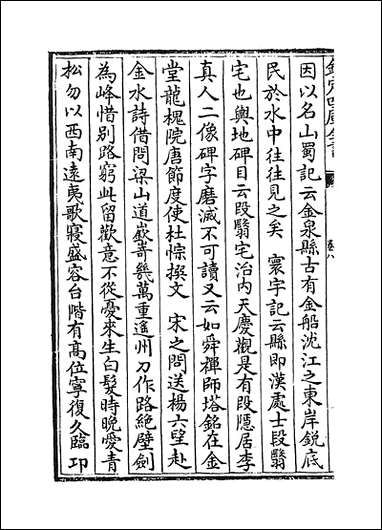 因以名山蜀記云金泉縣古有金船沈江之東岸鋭底
民於水中往往見之矣　寰宇記云縣即漢處士段翳
宅也輿地碑目云段翳宅治内天慶觀是有段隱居李
真人二像碑字磨滅不可讀又云如舜禪師塔銘在金
堂龍槐院唐節度使杜悰撰文　宋之問送楊六望赴
金水詩借問梁山道嶔岑幾萬重遥州刀作路絶壁劍
為峰惜别路窮此留歡意不從憂來生白髮時晚愛青
松勿以西南遠夷歌寢盛容台階有高位寧復久臨卭